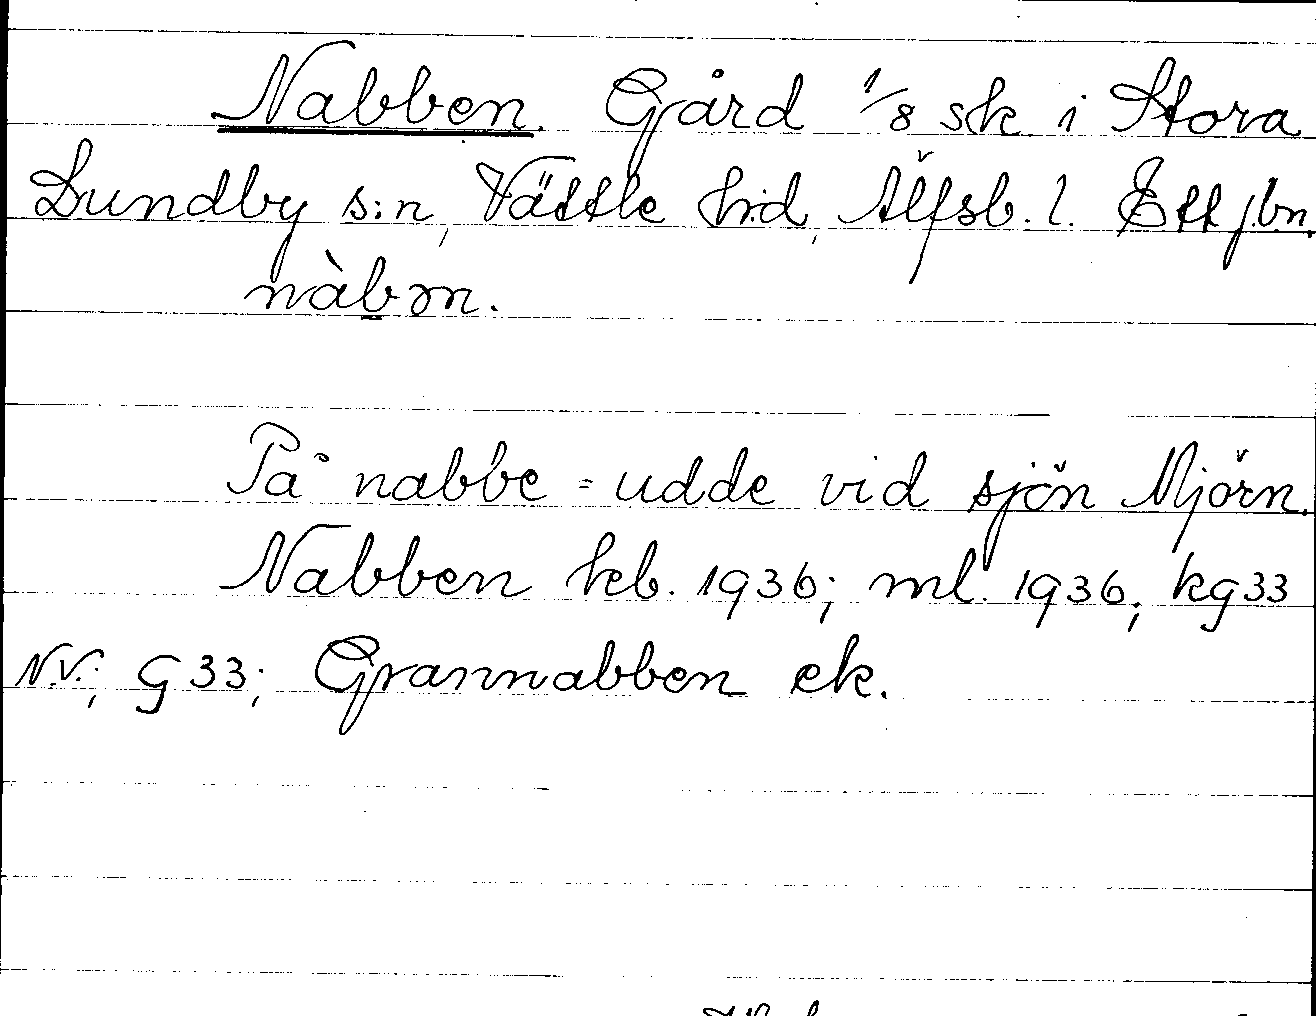 Nabben. Gård 1/8 sk i Stora
Lundby s:n, Vättle hd, Älfsb. l. Ett jbn.
nàbən.
På nabbe = udde vid sjön Mjörn.
Nabben kb. 1936; ml. 1936; kg33
N.V.; G33; Grannabben ek.